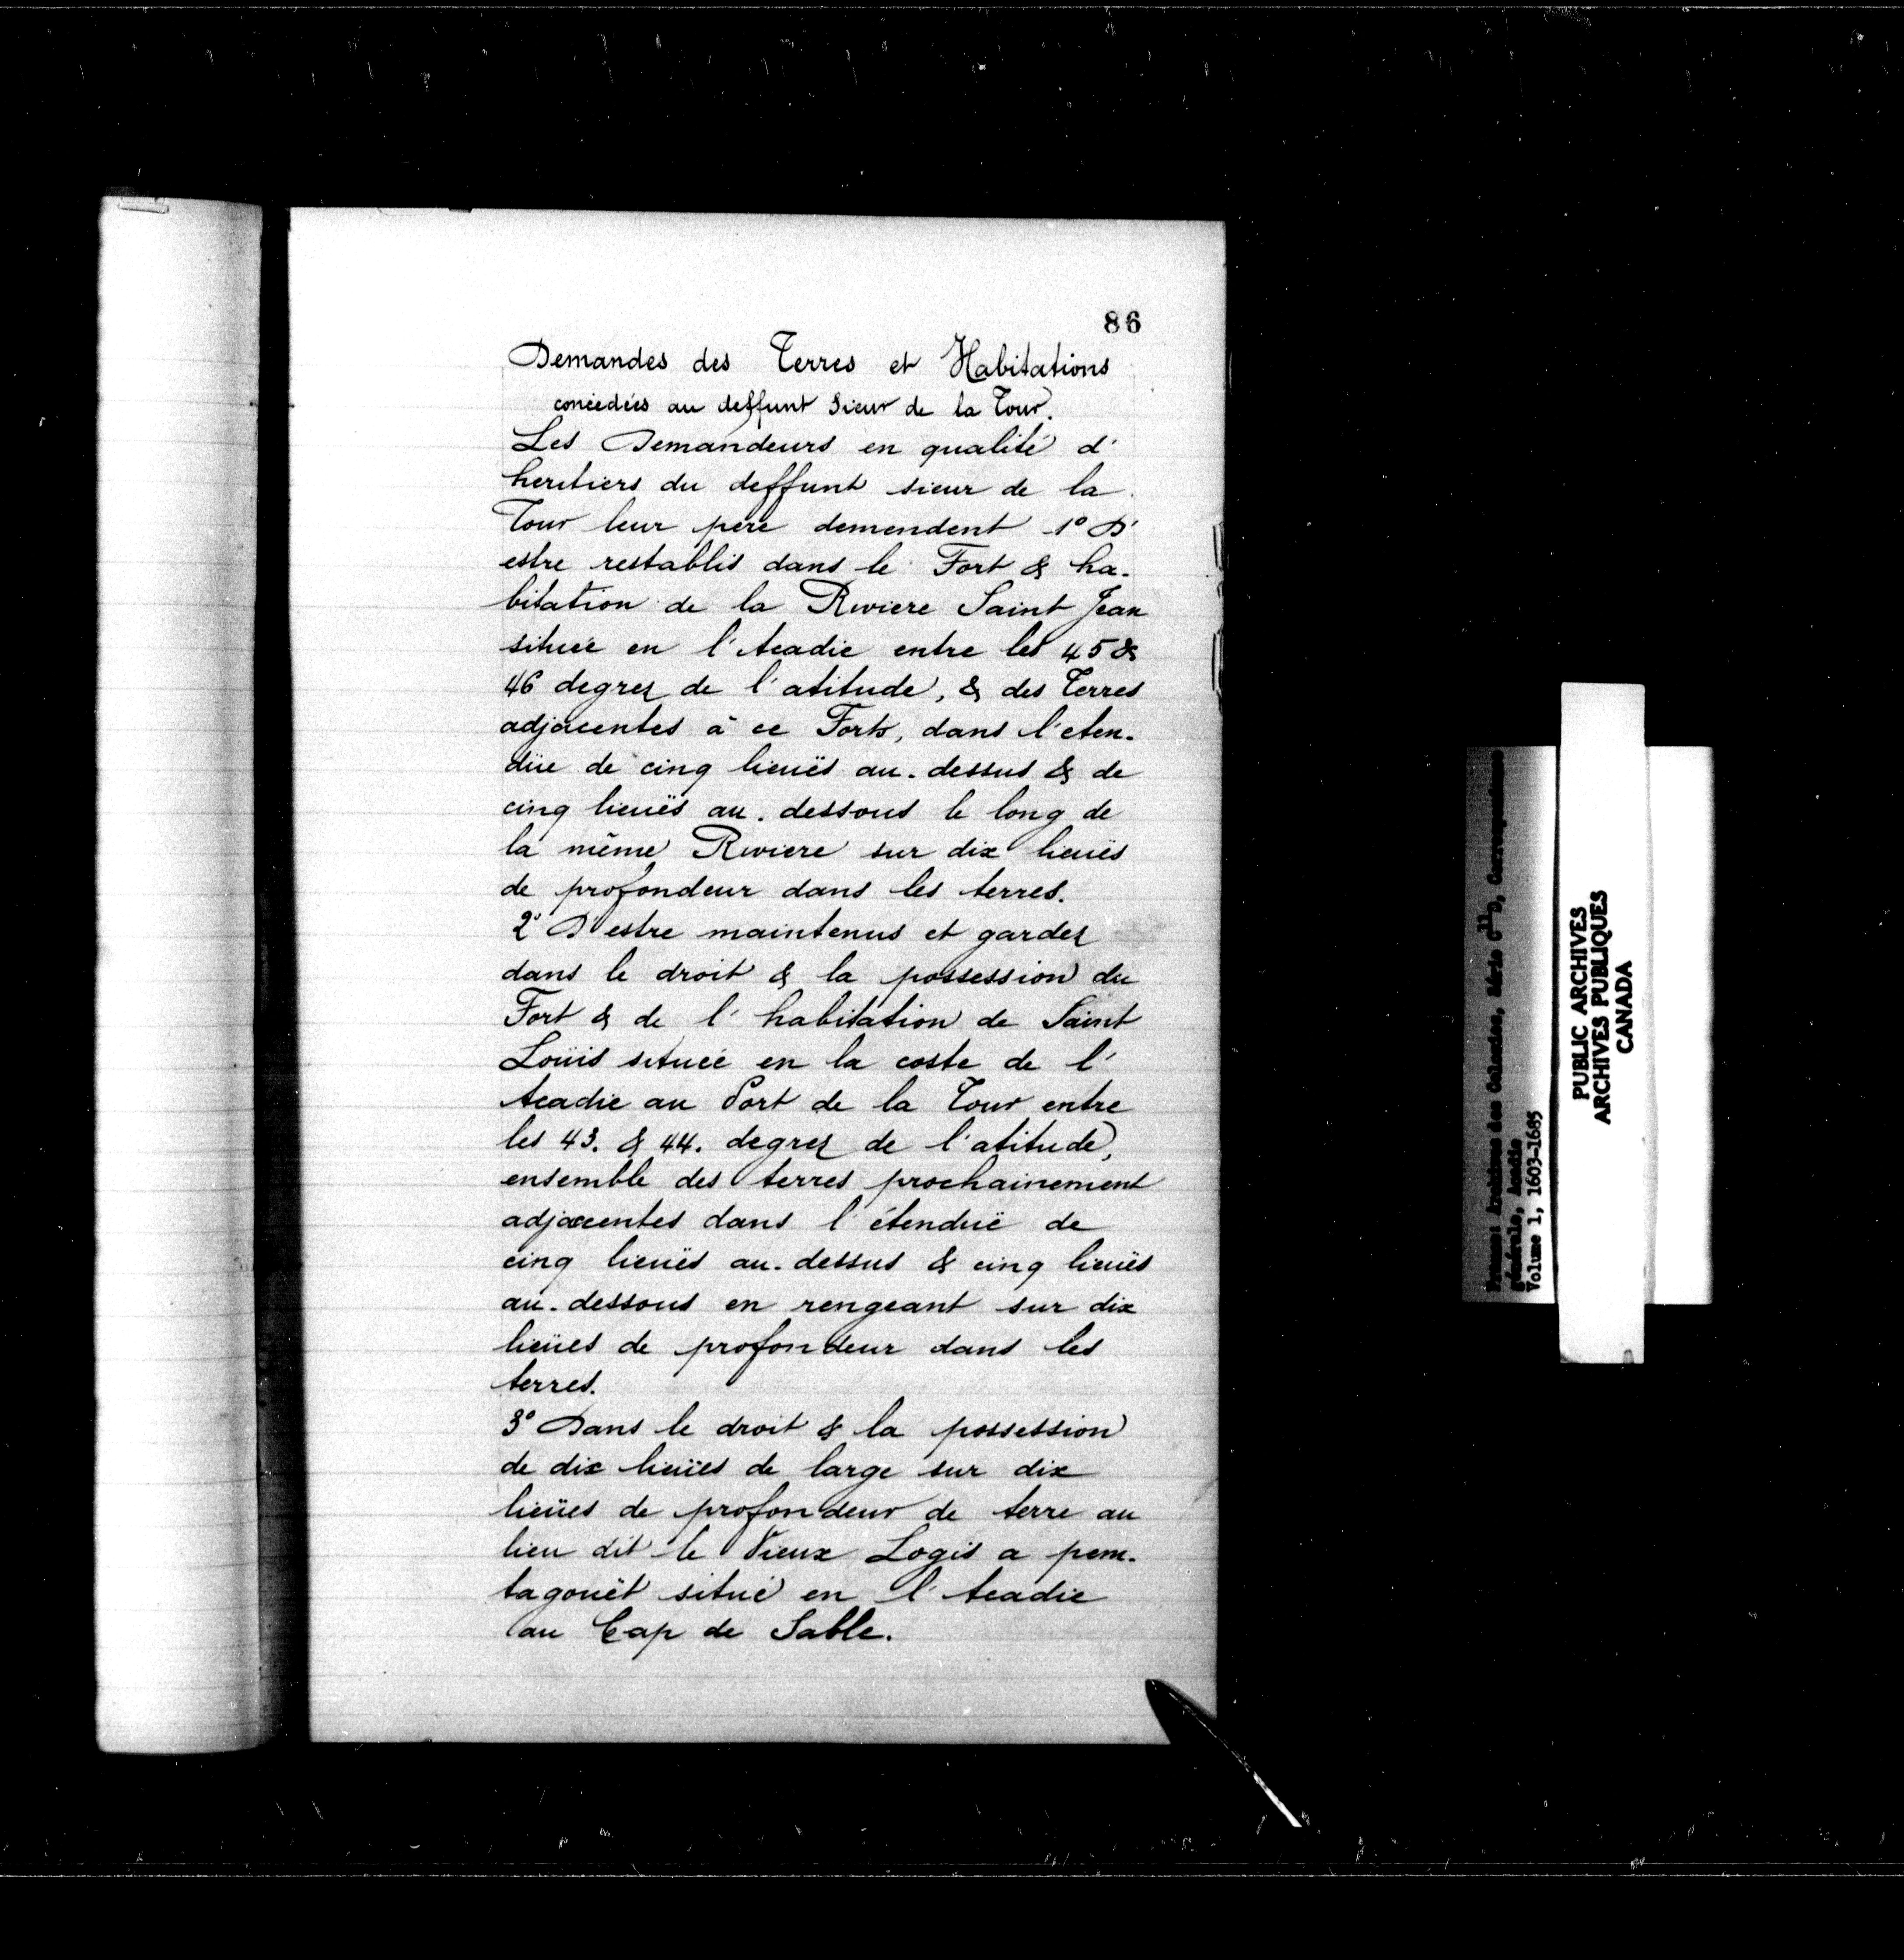 86
Demandes des Terres et Habitations
concedées au deffunt Sieur de la Tour.
Les Demandeurs en qualité d'
heritiers du deffunt sieur de la
Tour leur pere demendent 1° D'
estre restablis dans le Fort & ha-
bitation de la Riviere Saint Jean
située en l'Acadie entre les 45 &
46 degrez de l'atitude, & des Terres
adjacentes à ce Fort, dans l'eten-
düe de cinq lieuës au-dessus & de
cinq lieuës au-dessous le long de
la même Riviere sur dix lieuës
de profondeur dans les terres.
2° D'estre maintenus et gardez
dans le droit & la possession du
Fort & de l'habitation de Saint
Loüis située en la coste de l'
Acadie au Port de la Tour entre
les 43. & 44. degrez de l'atitude,
ensemble des terres prochainement
adjacentes dans l'étenduë de
cinq lieuës au-dessus & cinq lieuës
au-dessous en rengeant sur dix
lieües de profondeur dans les
terres.
3° Dans le droit & la possession
de dix lieües de large sur dix
lieües de profondeur de terre au
lieu dit le Vieux Logis a pem-
tagouët situé en l'Acadie
au Cap de Sable.
France: Archives des Colonies, Série C11D, Correspondance
générale, Acadie
Volume 1, 1603-1685
PUBLIC ARCHIVES
ARCHIVES PUBLIQUES
CANADA